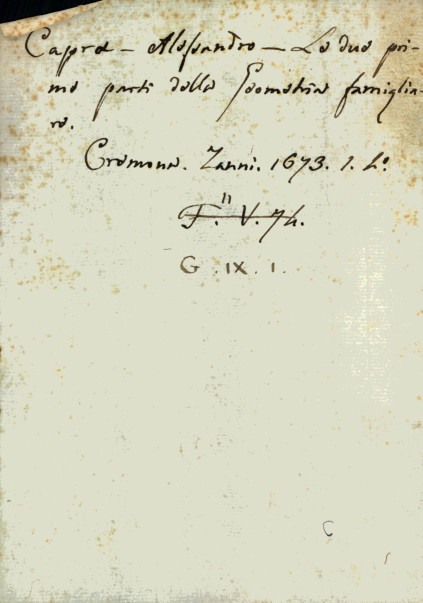 Capra - Alessandro - Le due pri-
me parti della Geometria famiglia-
re.
Cremona. Zanni. 1673. 1. 4.º
F." V. 74.
G. IX. 1.